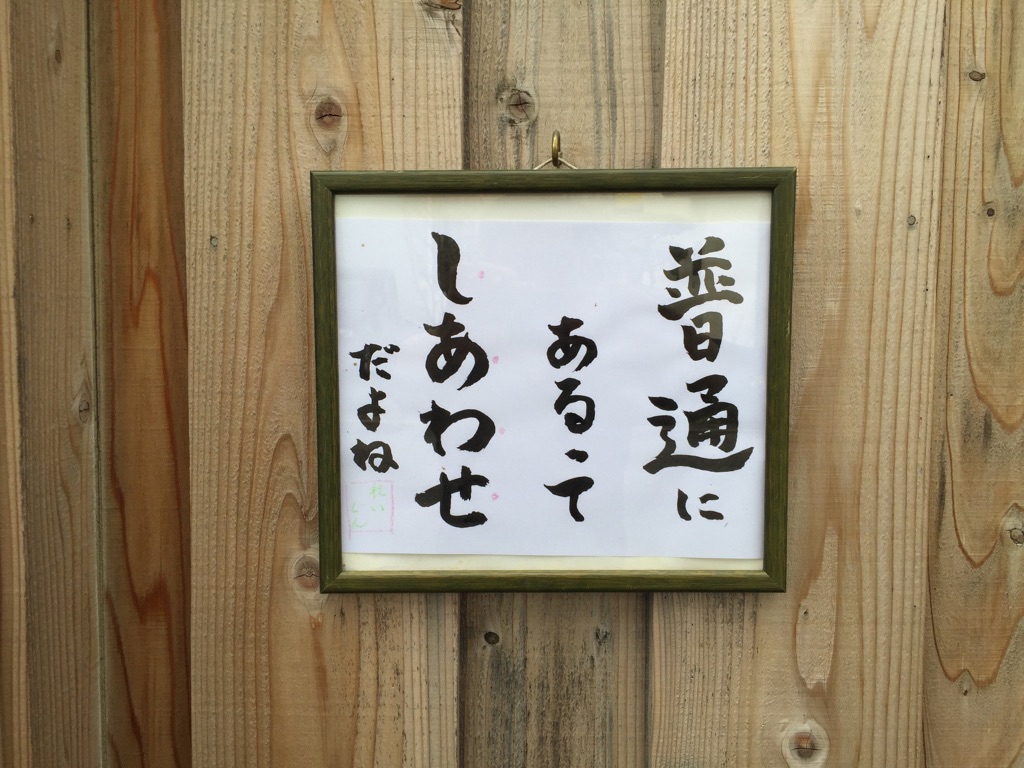 普通に
あるって
しあわせ
だよね
れい